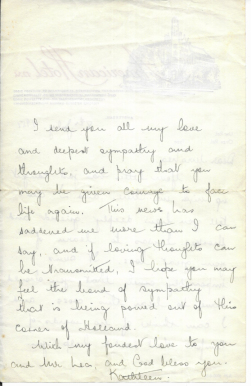 I send you all my love
and deepest sympathy and
thoughts, and pray that you
may be given courage to face
life again. This news has
saddened me more than I can
say, and if loving thoughts can
be transmitted, I hope you may
feel the band of sympathy
that is being poured out of this
corner of Holland.
With my fondest love to you
and Mr. Lea, and God bless you.
Kathleen.